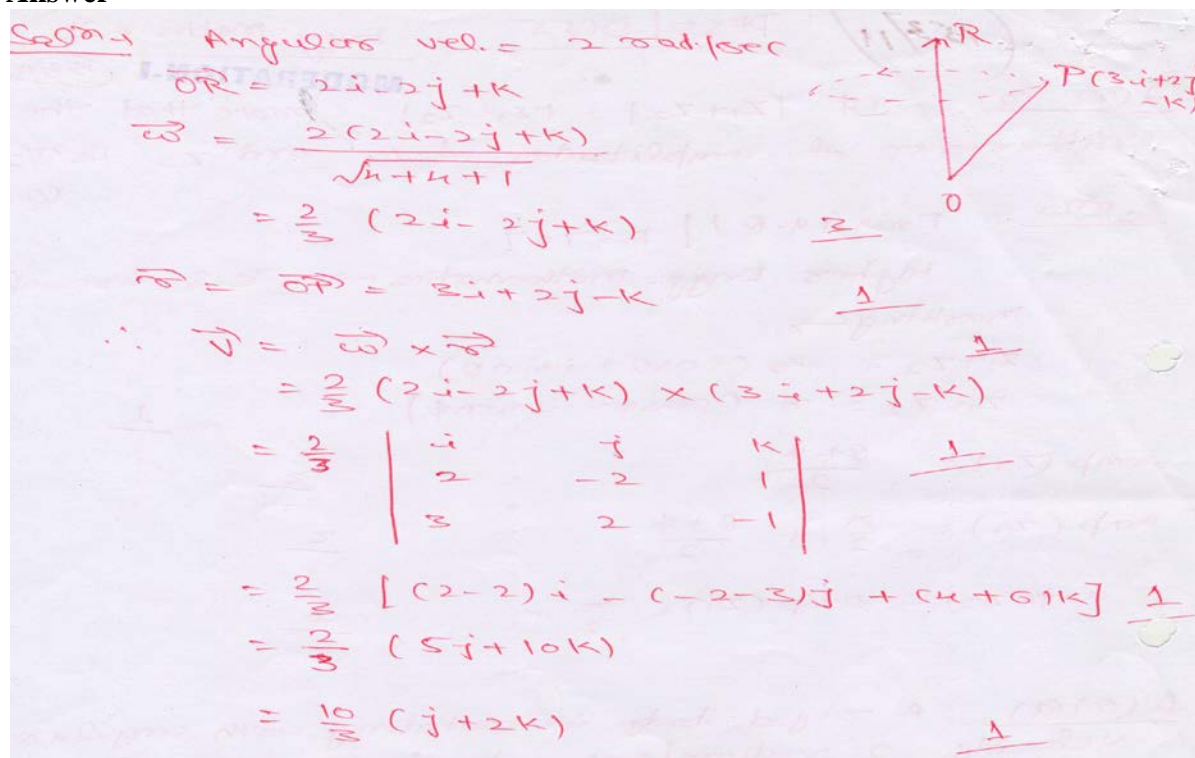 Answer
Soln→ Angular vel. = 2 rad./sec
R
OR⃗ = 2i-2j+K
P(3i+2j-K)
ω⃗ = 2(2i-2j+K) / √4+4+1
O
= 2/3 (2i-2j+K) 3
r⃗ = OP⃗ = 3i+2j-K 1
∴ V⃗ = ω⃗ × r⃗ 1
= 2/3 (2i-2j+K) × (3i+2j-K)
= 2/3 | i j K | 1
2 -2 1
3 2 -1
= 2/3 [(2-2)i - (-2-3)j + (4+6)K] 1
= 2/3 (5j+10K)
= 10/3 (j+2K) 1